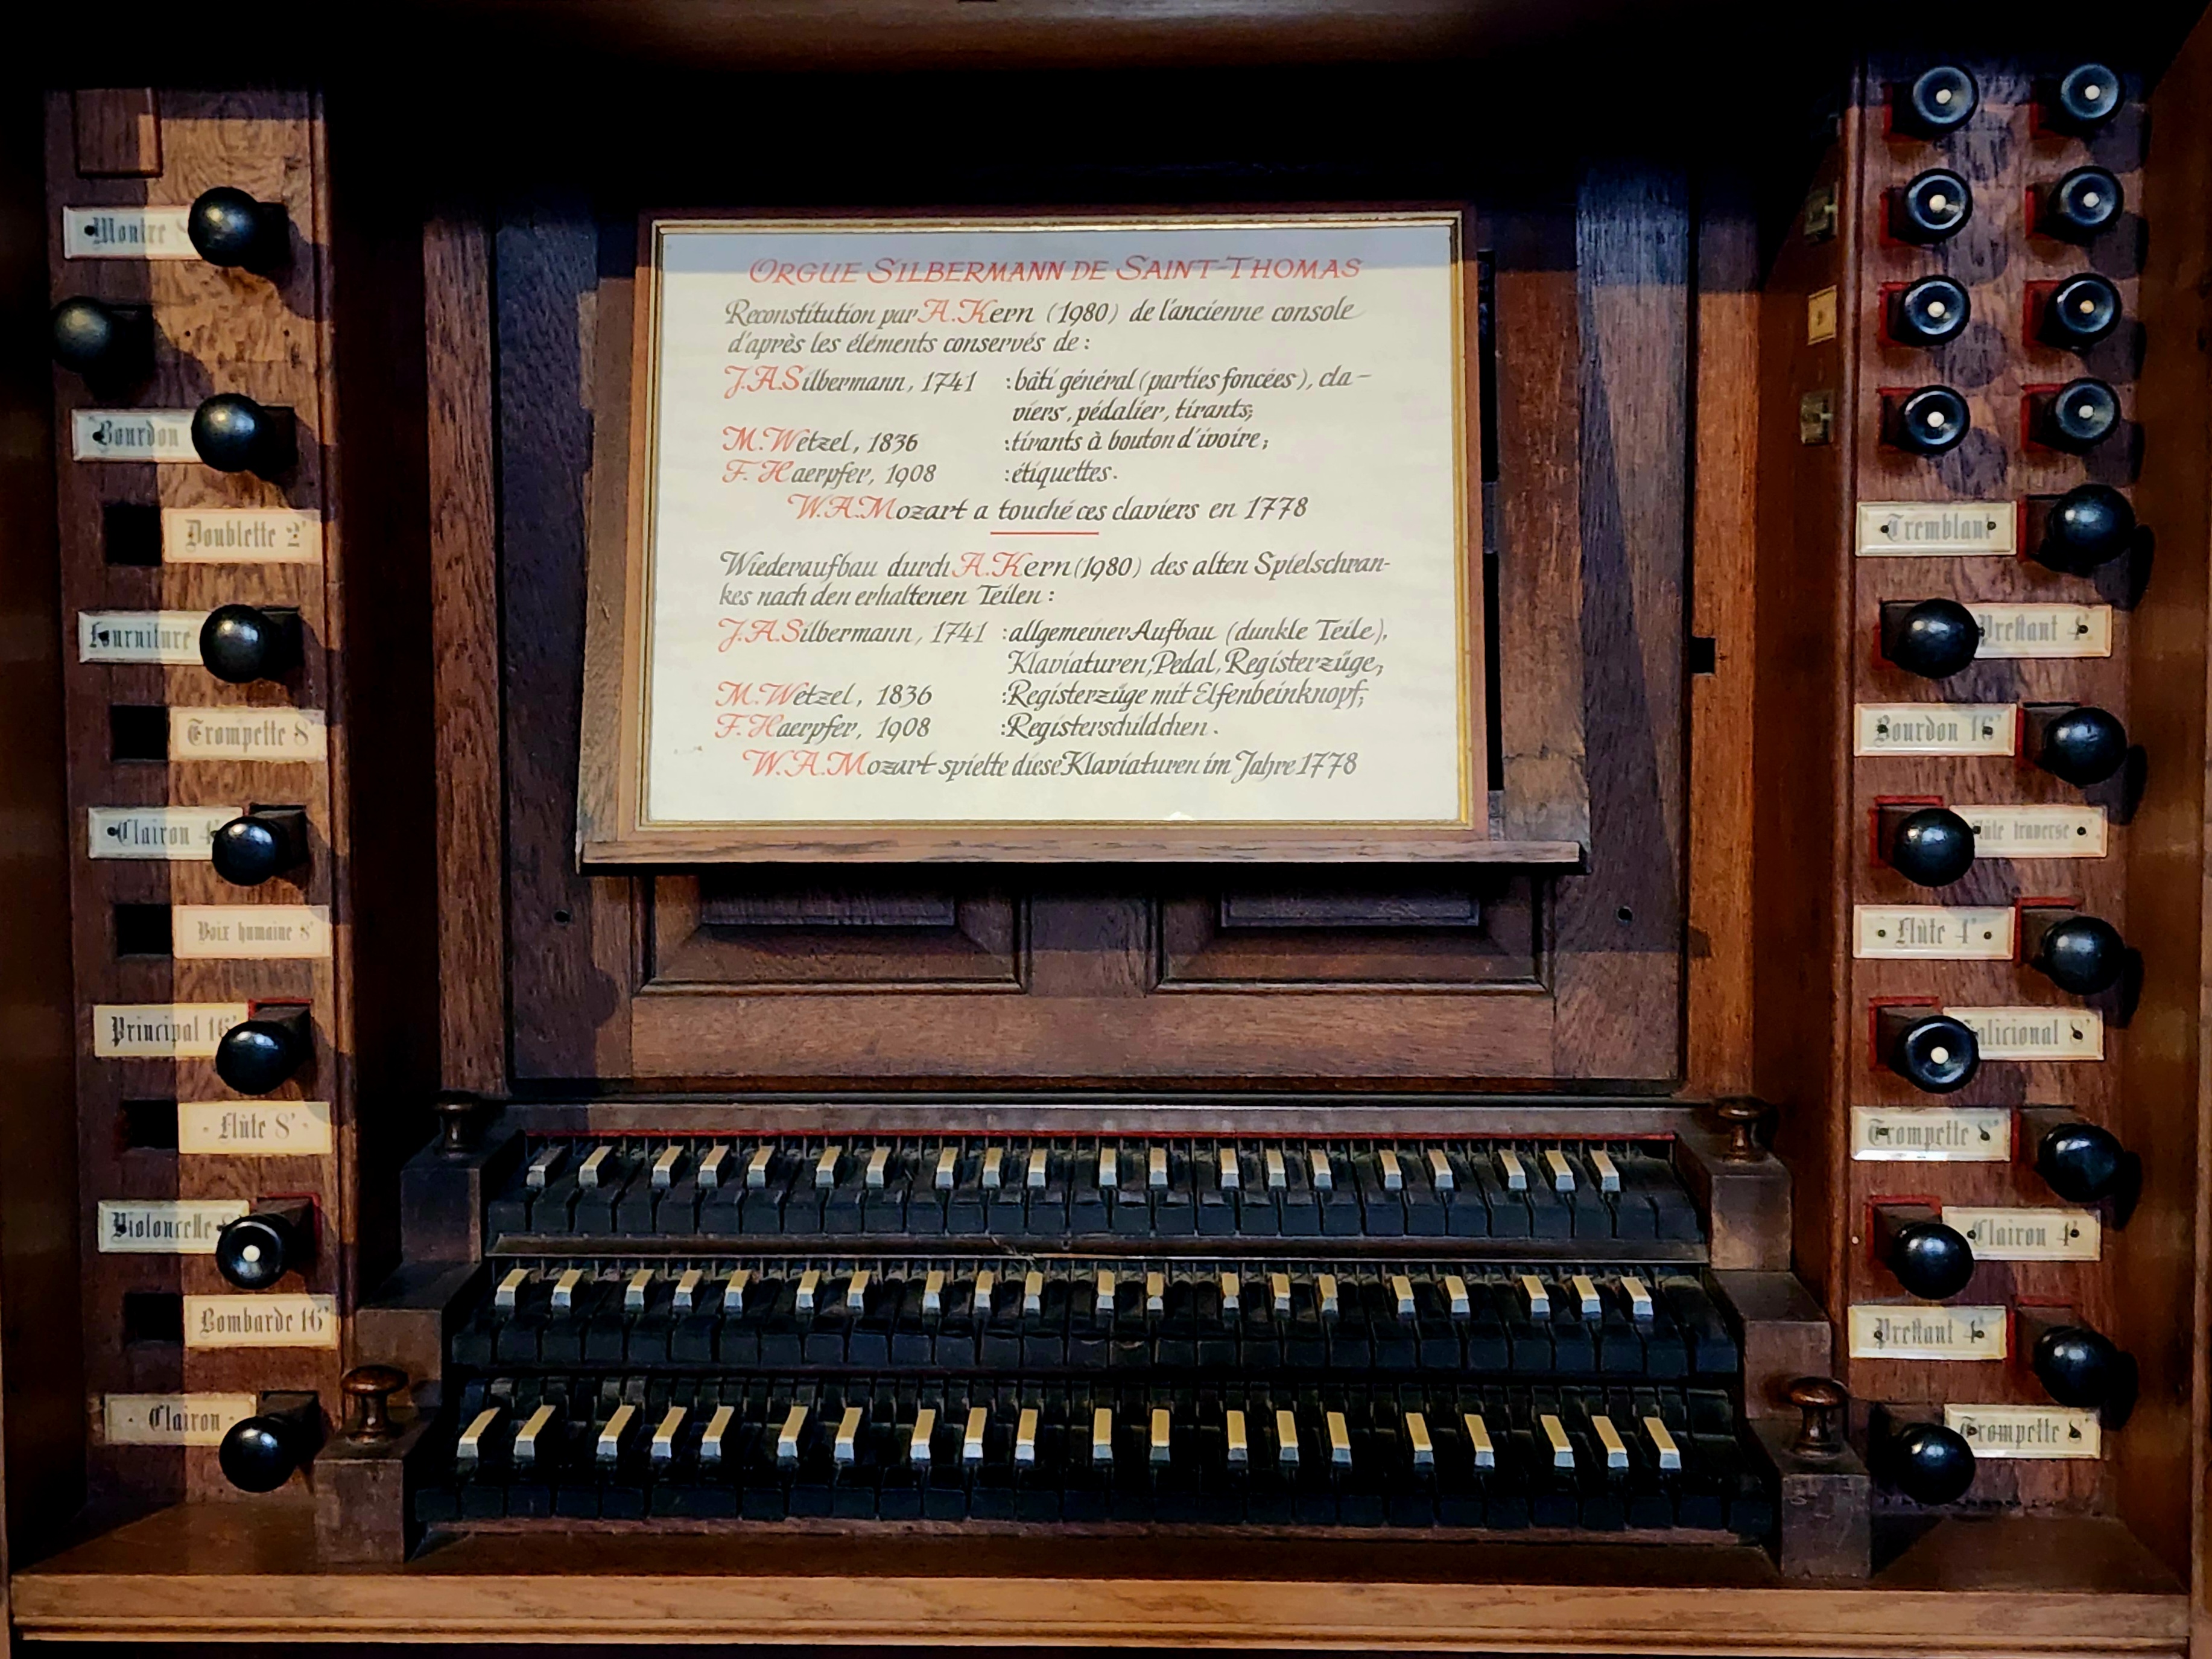 ORGUE SILBERMANN DE SAINT-THOMAS
Reconstitution par A. Kern (1980) de l'ancienne console
d'après les éléments conservés de :
J.A. Silbermann, 1741 : bâti général (parties foncées), cla-
viers, pédalier, tirants;
M. Wetzel, 1836 : tirants à bouton d'ivoire;
F. Haerpfer, 1908 : étiquettes.
W.A. Mozart a touché ces claviers en 1778
Wiederaufbau durch A. Kern (1980) des alten Spielschran-
kes nach den erhaltenen Teilen :
J.A. Silbermann, 1741 : allgemeiner Aufbau (dunkle Teile),
Klaviaturen, Pedal, Registerzüge,
M. Wetzel, 1836 : Registerzüge mit Elfenbeinknopf;
F. Haerpfer, 1908 : Registerschildchen.
W.A. Mozart spielte diese Klaviaturen im Jahre 1778
Montre
Bourdon
Doublette 2'
Fourniture
Trompette 8'
Clairon 4'
Voix humaine 8'
Principal 16'
Flûte 8'
Violoncelle
Bombarde 16'
Clairon
Tremblant
Prestant 4'
Bourdon 16'
Flûte traverse
Flûte 4'
Salicional 8'
Trompette 8'
Clairon 4'
Prestant 4'
Trompette 8'